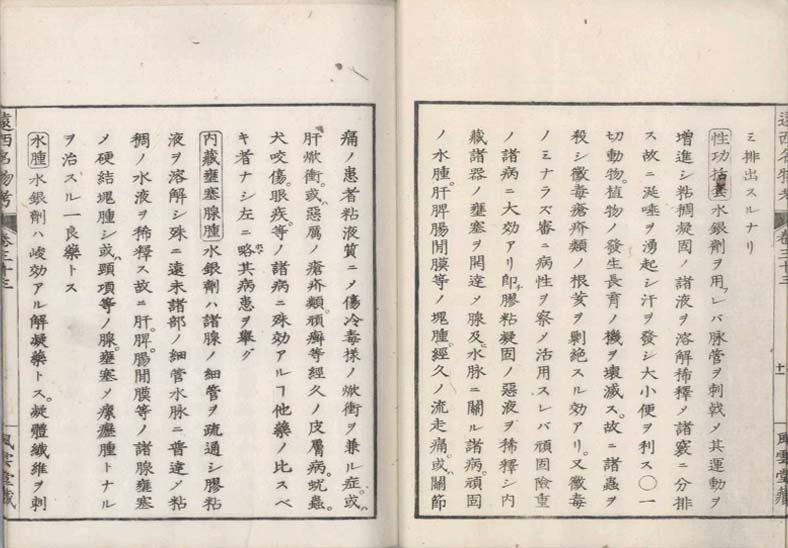 遠西名物考
卷三十三
十一
風雲堂藏
ミ排出スルナリ
性功括要 水銀劑ヲ用フレバ脉管ヲ刺戟メ其運動ヲ
増進シ粘稠凝固ノ諸液ヲ溶解稀釋メ諸竅ニ分排
ス故ニ涎唾ヲ湧起シ汗ヲ發シ大小便ヲ利ス〇一
切動物植物ノ發生長育ノ機ヲ壞滅ス故ニ諸蟲ヲ
殺シ黴毒瘡疥類ノ根荄ヲ剿絶スル効アリ又黴毒
ノミナラズ審ニ病性ヲ察メ活用スレバ頑固險重
ノ諸病ニ大効アリ即チ膠粘凝固ノ惡液ヲ稀釋シ内
藏諸器ノ壅塞ヲ開達メ腺及ビ水脉ニ關ル諸病頑固
ノ水腫肝脾腸間膜等ノ塊腫經久ノ流走痛或ハ關節
痛ノ患者粘液質ニメ傷冷毒様ノ焮衝ヲ兼ル症或ハ
肝焮衝或ハ惡厲ノ瘡疥類頑癬等經久ノ皮膚病蚘蟲
犬咬傷眼疾等ノ諸病ニ殊効アルヿ他藥ノ比スベ
キ者ナシ左ニ略其病患ヲ擧グ
内藏壅塞腺腫 水銀劑ハ諸腺ノ細管ヲ疏通シ膠粘
液ヲ溶解シ殊ニ遠末諸部ノ細管水脉ニ普達メ粘
稠ノ水液ヲ稀釋ス故ニ肝脾腸間膜等ノ諸腺壅塞
メ硬結塊腫シ或ハ頸項等ノ腺壅塞メ瘰癧腫トナル
ヲ治スル一良藥トス
水腫 水銀劑ハ峻効アル解凝藥トス凝體纖維ヲ刺
遠西名物考
卷三十三
風雲堂藏